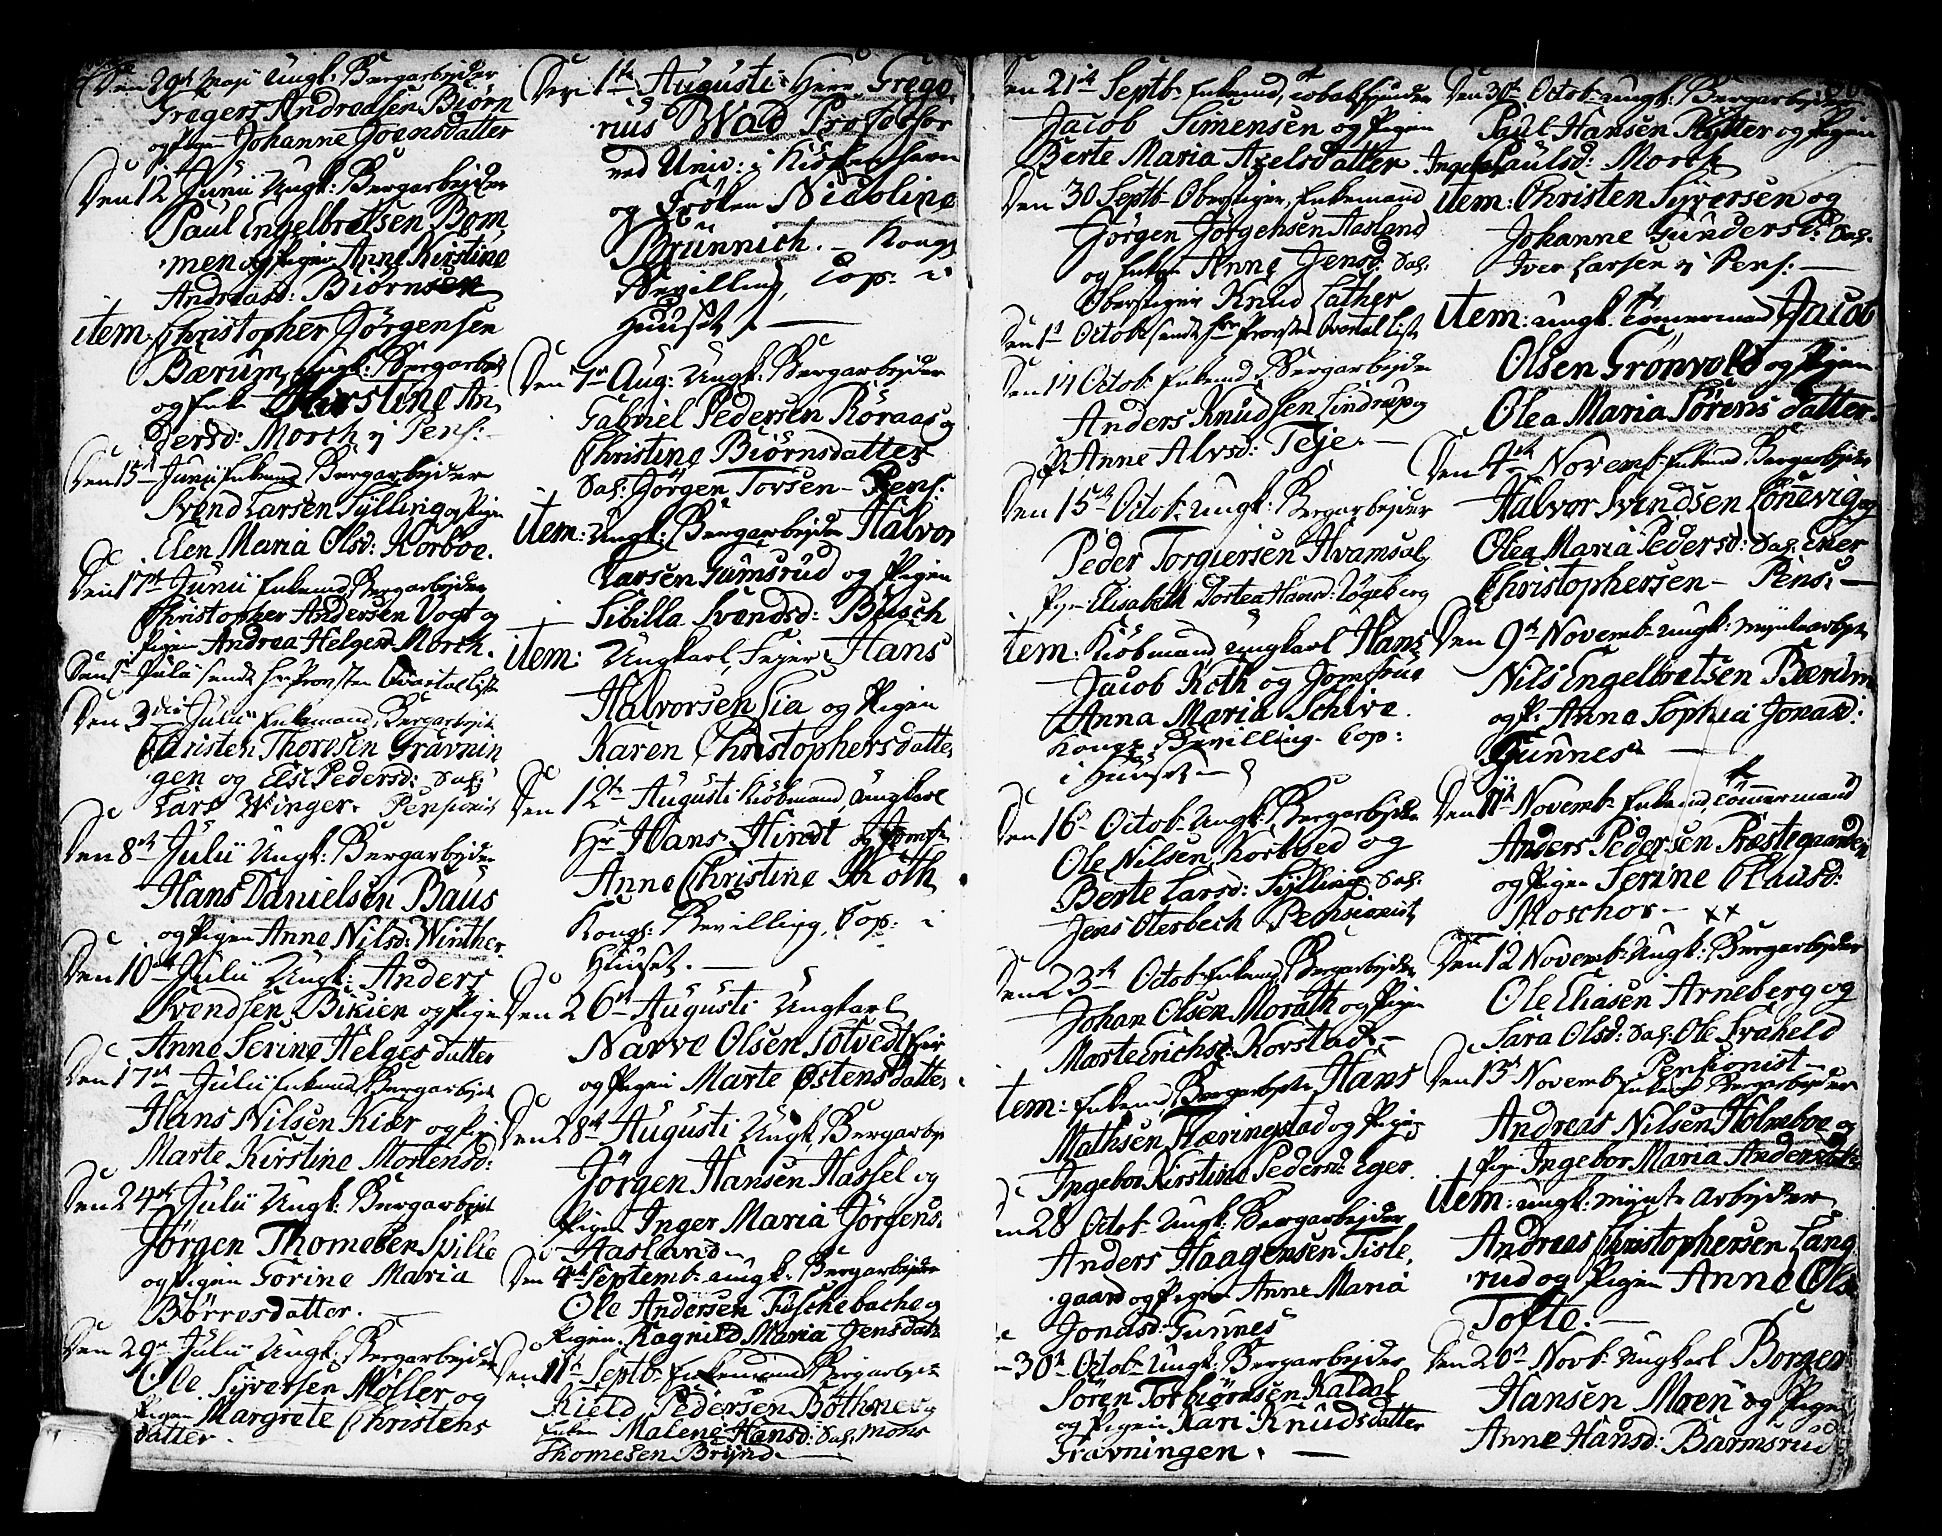 Den 29de Maji Ungk: Bergarbejder
Gregers Andreasen Biørn
og Pigen Johanne Joensdatter
Den 12 Junii Ungk: Bergarbejder
Paul Engelbretsen Bom
men og Pigen Anne Kirstine
Andreasd: Biørnsen
item Christopher Jørgensen
Bærum, ungk: Bergarbej
og Enke Kirstine An
dersd: Morch  Pens:
Den 15 Junii Enkemd Bergarbejder
Svend Larsen Sylling og Pigen
Elen Maria Olsd: Korboe.
Den 17de Junii Enkemd Bergarbejder
Christopher Andersen Vogt og
Pigen Andrea Helgesd: Morch.
Den 1 Julii sendt Hr Provsten Qvartal Liste
Den 3die Julii Enkemand, Bergarbejder
Christen Thoresen Gravnin
gen og Else Pedersd: Sal:
Lars Winger. Pensionist
Den 8de Julii Ungk: Bergarbejder
Hans Danielsen Baus
og Pigen Anne Nilsd: Winther.
Den 10de Julii Ungk: Anders
Svendsen Bikien og Pigen
Anne Serine Helgesdatter
Den 17de Julii Enkemd Bergarbejd
Hans Nilsen Kiær og Pigen
Marte Kirstine Mortensd:
Den 24de Julii Ungk: Bergarbejd
Jørgen Thomesen Spille
og Pigen Torine Maria
Børresdatter.
Den 29de Julii Ungk: Bergarbejder
Ole Syversen Møller og
Pigen Margrete Christens
datter.
Den 1te Augusti Herr Grego
rius Wad Professor
ved Univ: i Kiøbenhavn
og Frøken Nicoline
Brünnich. Kongs
Bevilling, Cop: i
Huuset.
Den 7de Aug: Ungk: Bergarbejder
Gabriel Pedersen Røraas og
Christine Biørnsdatter
Sal: Jørgen Torsen Pens:
item: Ungk: Bergarbejder Halvor
Larsen Gumsrud og Pigen
Sibilla Svendsd: Busch
item: Ungkarl, Fejer Hans
Halvorsen Lia og Pigen
Karen Christophersdatter
Den 12te Augusti Kiøbmand, Ungkarl
Hr Hans Hindt og Jomfr
Anne Christine Roth
Kongs: Bevilling, Cop: i
Huuset.
Den 26de Augusti Ungkarl
Narve Olsen Solvedtfier
og Pigen Marte Østensdatter
Den 28de Augusti Ungk, Bergarbej
Jørgen Hansen Hassel og
Pigen Inger Maria Jørgens:
Hasland
Den 4de Septemb: ungk: Bergarbejder
Ole Andersen Fuschebache og
Pigen Ragnild Maria Jensdatt
Den 11te Septb: Enkemand Bergarbejd
Kield Pedersen Bothner og
Enken Malene Hansd: Sal: Mons
Thomesen Brynd
Den 21de Septb: Enkemd, Cobaltskjeder
Jacob Simensen og Pigen
Berte Maria Axelsdatter.
Den 30 Septb: Oberstiger, Enkemand
Jørgen Jørgensen Hasland
og Enken Anne Jensd: Sal:
Oberstiger Knud Lather
Den 1 Octob: sendt Hr Provsten Qvartal Liste
Den 14 Octob: Enkemd Bergarbejder
Anders Knudsen Lindrup og
P: Anne Alvsd: Teje.
Den 15de Octob: Ungk: Bergarbejder
Peder Torgiersen Hvamsal
Pigen Elisabeth Dortea Hansd: Løgeberg
item: Kiøbmand ungkarl Hans
Jacob Roth og Jomfrue
Anna Maria Schive.
Kongs Bevilling. Cop:
i Huuset
Den 16de Octob: Ungk: Bergarbejder
Ole Nilsen Korboed og
Berte Larsd: Sylling Sal:
Jens Oterbech Pensionist
Den 23de Octob: Enkemd, Bergarbejder
Johan Olsen Morath og Pigen
Marte Erichsd: Korstad
item: Enkemd, Bergarbejder Hans
Mathsen Næringstad og Pigen
Ingebor Kirstine Pedersd: Eger.
Den 28 Octob: Ungk: Bergarbejder
Anders Haagensen Tisle
gaard og Pigen Anne Maria
Jonasd: Gunnes
Den 30te Octob: Ungk: Bergarbejder
Søren Torbiørnsen Kaldal
og Pigen Kari Knudsdatter
Gravningen.
Den 30te Octob: ungk: Bergarbejder
Paul Hansen Flytter og Pigen
Ingebor Paulsd: Morch
item: Christen Syversen og
Johanne Gundersd: Sal:
Iver Larsen  Pens:
item: ungk: Tømermand Jacob
Olsen Grønvold og Pigen
Olea Maria Sørensdatter.
Den 4de Novemb: Enkemd Bergarbejder
Halvor Svendsen Lønnevig og
Olea Maria Pedersd: Sal: Ener
Christophersen Pens:
Den 9de Novemb: ungk: Myntearbejd
Nils Engelbretsen Bærum
og P: Anna Sophia Jonasd:
Gunnes
Den 11te Novemb: Enkemd, Tømmermand
Anders Pedersen Præstegaarden
og Pigen Serine Clausd:
Moschos xx
Den 12 Novemb: Ungk: Bergarbejder
Ole Eliasen Arneberg og
Sara Olsd: Sal: Ole Svaheld
Pensionist
Den 13de Novemb: Enkemd Bergarbejder
Andreas Nilsen Holmeboe og
Pigen Ingebor Maria Andersdatter
item: ungk: Mynte Arbejder
Andreas Christophersen Lang
rud og Pigen Anne Olsd
Tofte.
Den 20de Novb: Ungkarl Borger
Hansen Moen og Pigen
Anne Hansd: Barmsrud